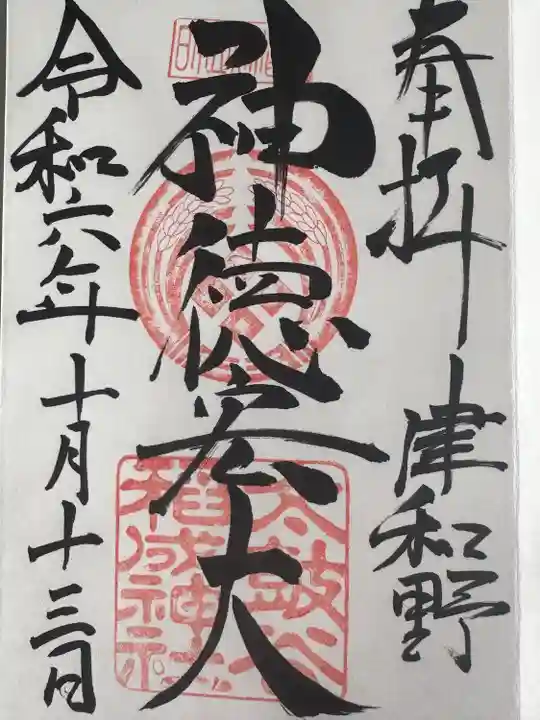 奉拝 津和野
神徳宏大
太鼓谷
稲成神社
令和六年十月十三日